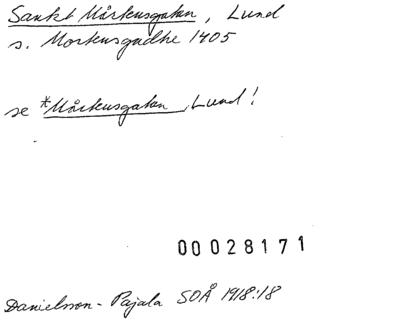 Sankt Mårtensgatan, Lund
s. Mortensgadhe 1405
se *Mårtensgatan, Lund!
00028171
Danielsson - Pajala SOÅ 1918:18